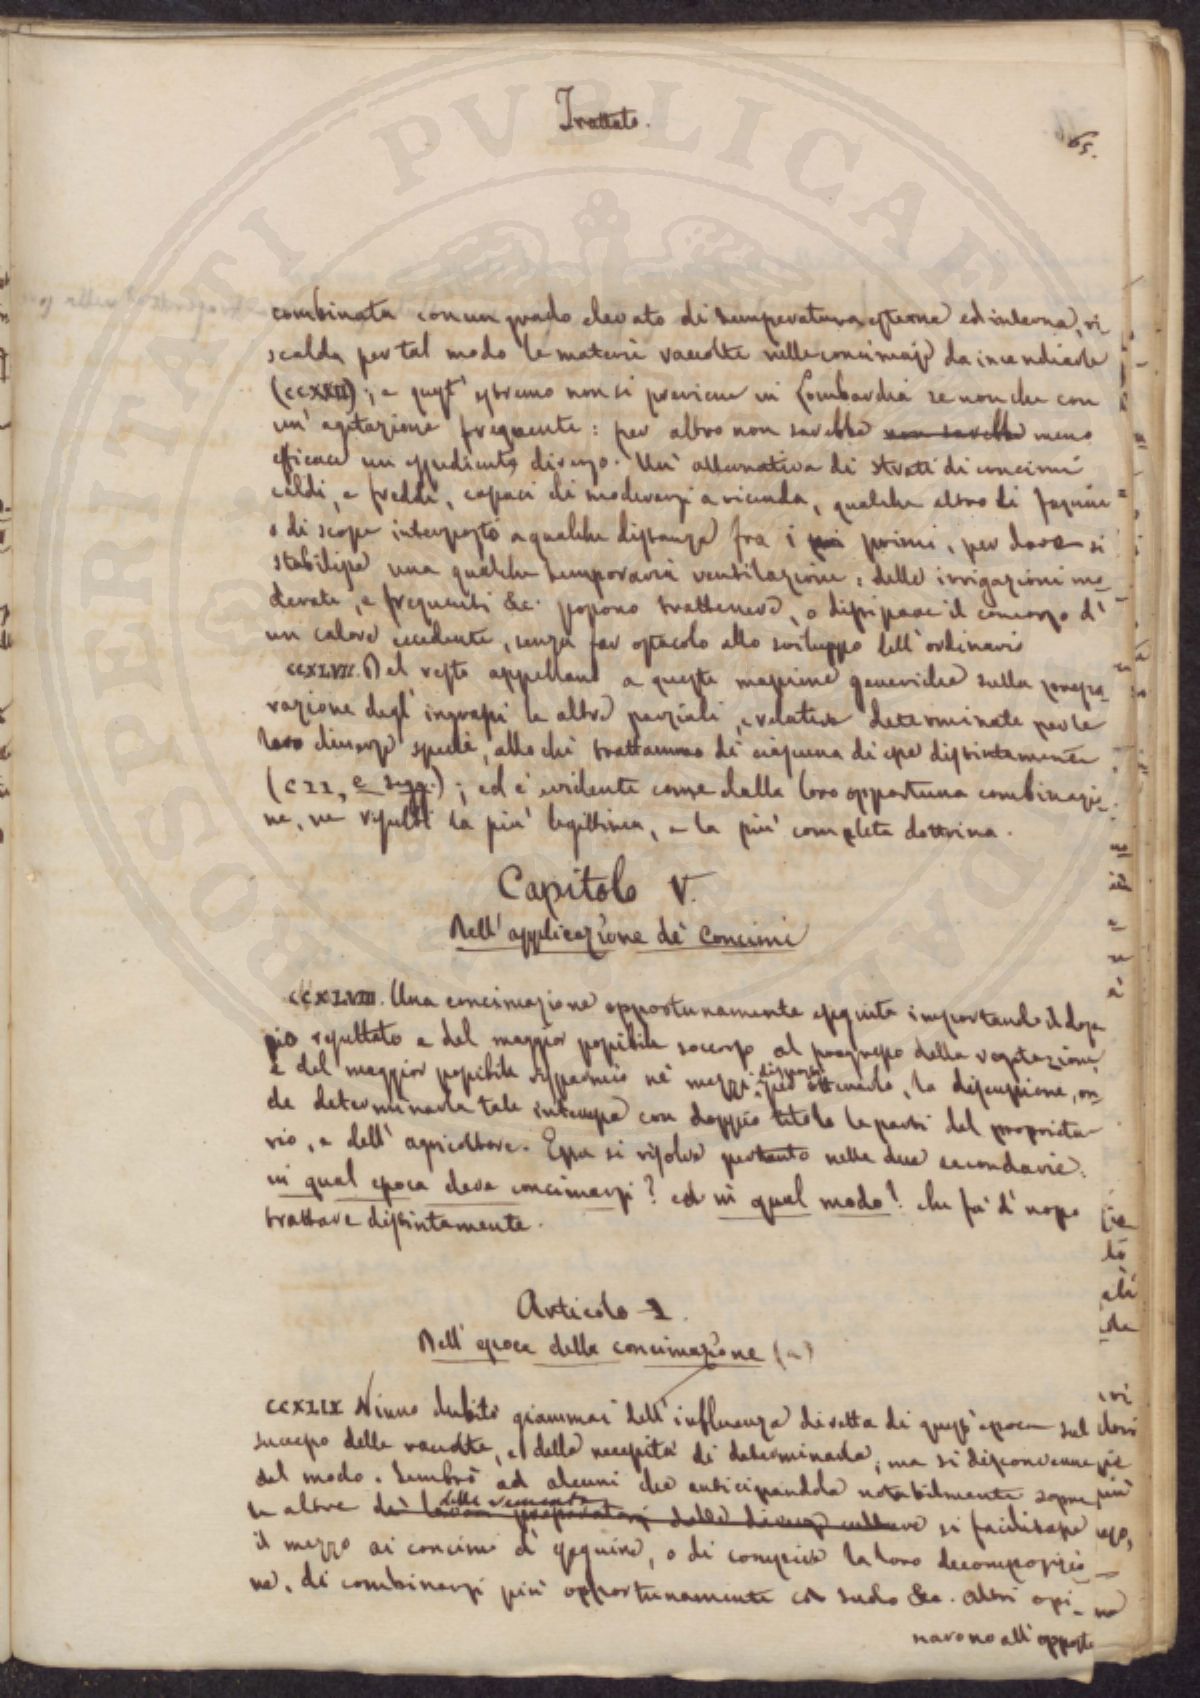 Trattato.
65.
combinata con un grado elevato di temperatura esterna ed interna, ri
scalda per tal modo le materie raccolte nelle concimaje da incendiarle
(CCXXII); e quest' estremo non si previene in Lombardia se non che con
un' agitazione frequente: per altro non sarebbe non sarebbe meno
efficace un espediente diverso. Un' alternativa di strati di concimi
caldi, e freddi, capaci di moderarsi a vicenda, qualche altro di fascine
o di scope interposto a qualche distanza fra i primi, per dove si
stabilisse una qualche temporaria ventilazione; delle irrigazioni mo-
derate, e frequenti &c. possono trattenere, o dissipare il concorso d'
un calore eccedente, senza far ostacolo allo sviluppo dell' ordinario
CCXLVII. Del resto appellano a queste massime generiche sulla prepa
razione degl' ingrassi le altre parziali, e relative determinate per le
loro diverse specie, allorchè trattammo di ciascuna di esse distintamente
(CII, e segg.); ed è evidente come dalla loro opportuna combinazio-
ne, ne risulti la più legittima, e la più completa dottrina.
Capitolo V.
Dell' applicazione de' Concimi
CCXLVIII. Una concimazione opportunamente eseguita importando il dop
pio risultato e del maggior possibile soccorso al progresso della vegetazione,
e del maggior possibile risparmio ne' mezzi per ottenerlo, la discussione, on-
de determinarla tale interessa con doppio titolo le parti del proprieta-
rio, e dell' agricoltore. Essa si risolve pertanto nelle due secondarie:
in qual epoca deve concimarsi? ed in qual modo? che fa d' uopo
trattare distintamente.
Articolo 1.
Dell' epoca della concimazione (a)
CCXLIX Niuno dubitò giammai dell' influenza diretta di quest' epoca sul
successo delle raccolte, e della necessità di determinarla; ma si disconvenne
del modo. Sembrò ad alcuni che anticipandola notabilmente sopra
delle sementi
le altre de' lavori preparatorj delle diverse colture si facilitasse
il mezzo ai concimi d' eseguire, o di compiere la loro decomposizio
ne, di combinarsi più opportunamente col suolo &c. Altri opi-
narono all' opposto